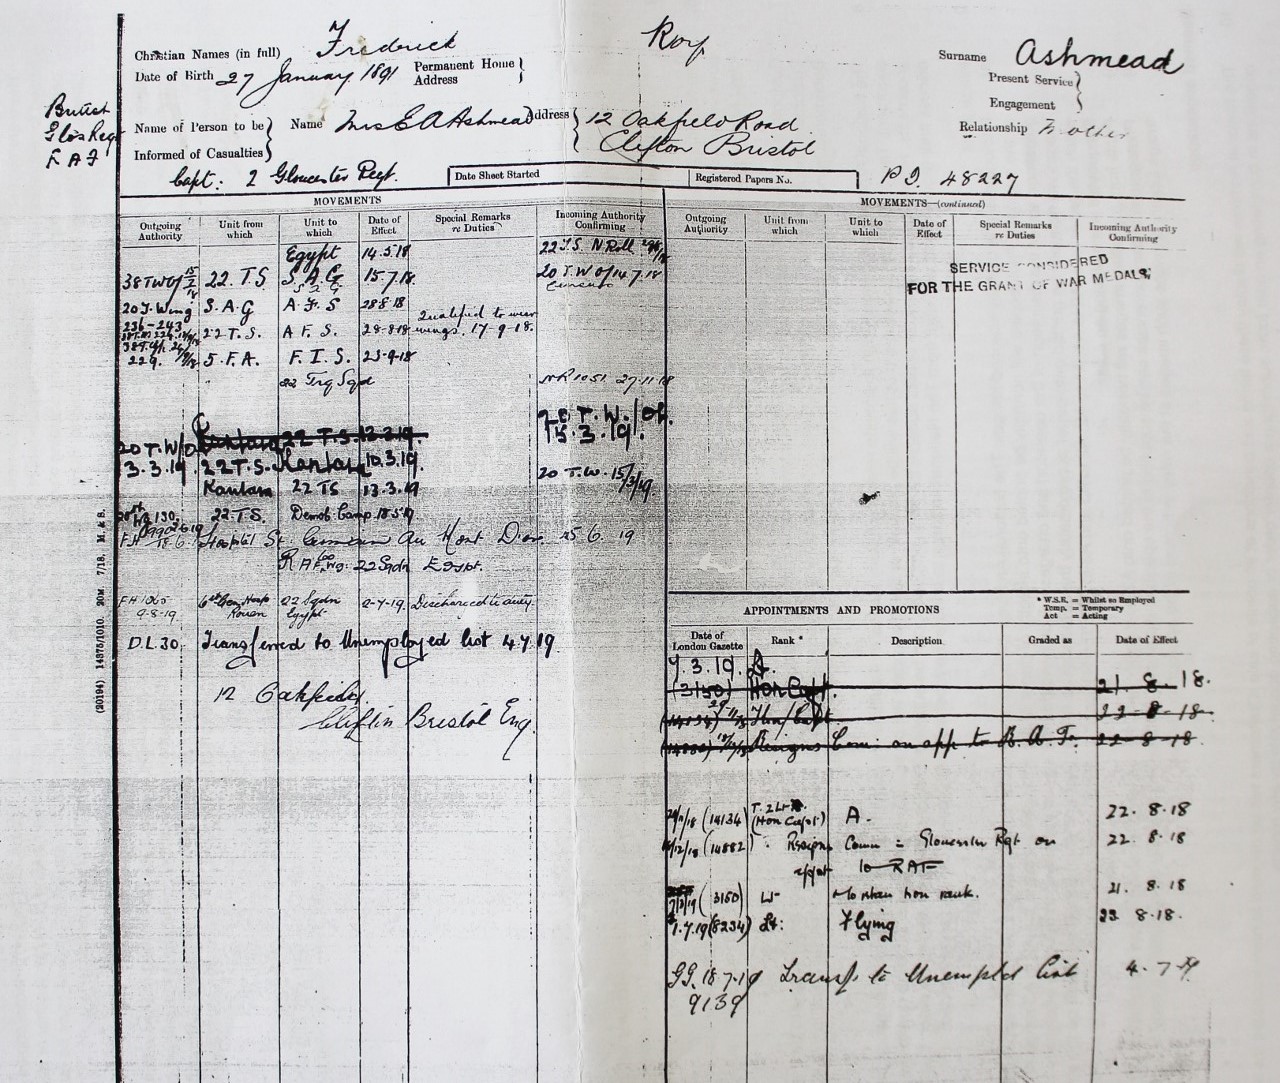 Christian Names (in full) Fredrick Roy Surname Ashmead
Date of Birth 27 January 1891 Permanent Home Address Present Service
Engagement
British
Glos Regt
R A F
Name of Person to be Informed of Casualties Name Mrs E A Ashmead Address 12 Oakfield Road Relationship Mother
Clifton Bristol
Capt: 2 Gloucester Regt. Date Sheet Started Registered Papers No. P I. 48227
MOVEMENTS
Outgoing Authority Unit from which Unit to which Date of Effect Special Remarks re Duties Incoming Authority Confirming
Egypt 14.5.18 22 T.S. N Roll
38 TW Of 22. T.S. S.A.G 15.7.18 20 T.W Of 14.7.18
20 T. Wing S.A.G A.F.S 28 8 18
236-243 22 T.S. A F S. 28-8-18 Qualified to wear wings. 17-9-18.
229. 5.F.A. F.I.S. 23-9-18
22 Trg Sqd NR 1051 27.11.18
22 T.S. 12.3.19 20 T.W./Of. 15.3.19
20 T.W/O 3.3.19 22 T.S. Kantara 10.3.19
Kantara 22 TS 13.3.19 20 T.W. 15/3/19
130. 22.T.S. Demob Camp 18.5.19
Hospital St Germain Au Mont Dor 25 6 19
R A F 22 Sqdn Egypt.
FH 1065 9-8-19 6th Gen Hosp Rouen 22 Sqdn Egypt 2-7-19. Discharged to duty.
D.L.30. Transferred to Unemployed list 4.7.19
12 Oakfield
Clifton Bristol Eng.
(20194) 14375/1010. 20M. 7/18. M. & S.
MOVEMENTS—(continued)
Outgoing Authority Unit from which Unit to which Date of Effect Special Remarks re Duties Incoming Authority Confirming
SERVICE CONSIDERED
FOR THE GRANT OF WAR MEDALS
APPOINTMENTS AND PROMOTIONS
* W.S.E. = Whilst so Employed
Temp. = Temporary
Act = Acting
Date of London Gazette Rank * Description Graded as Date of Effect
7.3.19.
(3150) Hon Capt. 21. 8. 18.
(14134) Hon/Capt 22-8-18.
(14882) Resigns Com: on app to R.A.F. 22-8-18
29/11/18 (14134) T. 2Lt (Hon Capt) A. 22. 8.18
(14882) Resigns Comm = Gloucester Rgt on appt to RAF 22. 8.18
7/3/19 (3150) Lt to retain hon rank. 21. 8.18
1.7.19 (8234) Lt: Flying 22 8-18.
GG. 18.7.19 9139 Transf to Unempld list 4.7.19